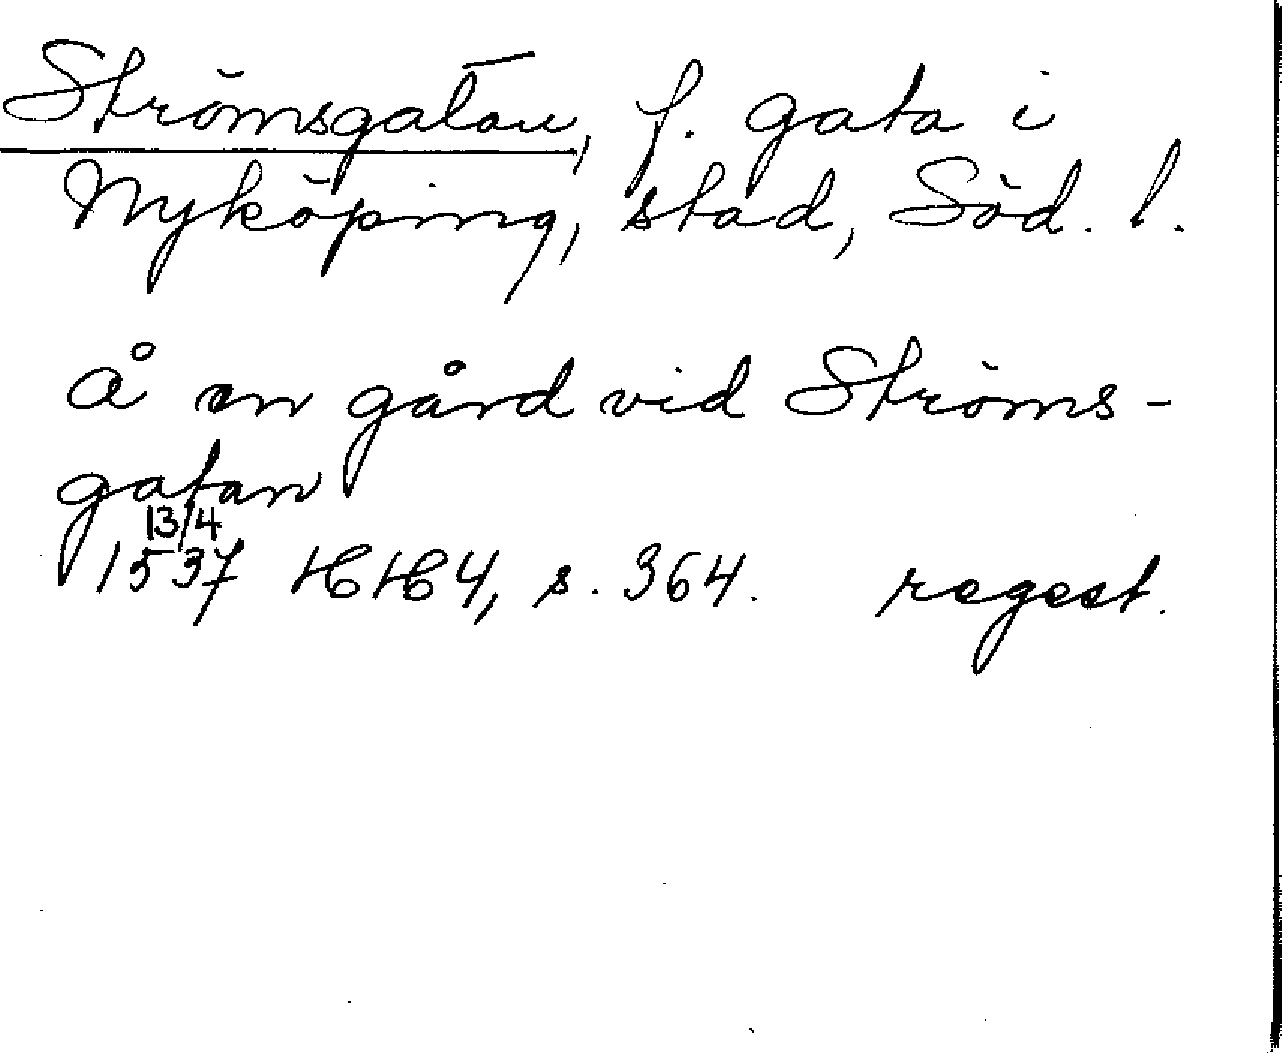 Strömsgatan, f. gata i
Nyköping, stad, Söd. l.
Å en gård vid Ströms-
gatan
13/4
1537 HH 4, s. 364. regest.